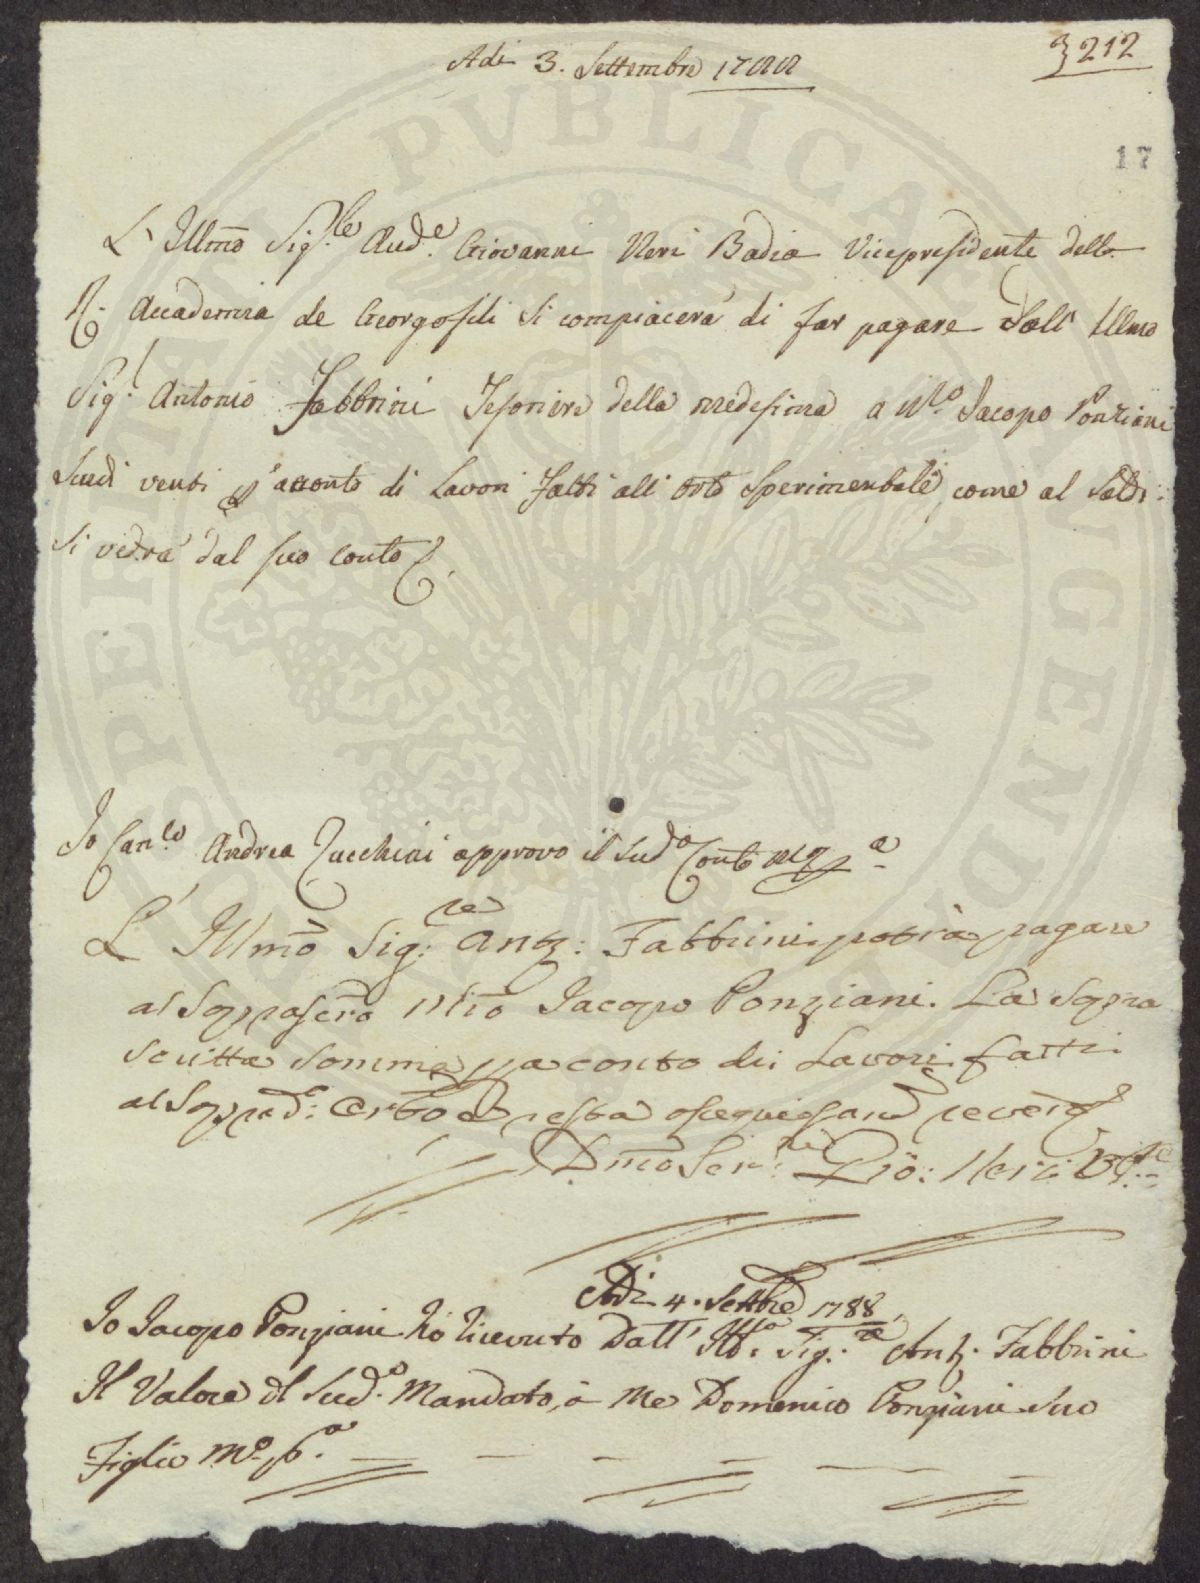 Adi 3. Settembre 1788
3212
17
L' Illmo Sig.le Aud.e Giovanni Neri Badia Vicepresidente della
R. Accademia de Georgofili si compiacerà di far pagare dall' Illmo
Sig. Antonio Fabbrini Tesoriere della medesima a M.ro Jacopo Ponziani
Scudi venti p acconto di Lavori fatti all' Orto Sperimentale, come al Saldo
si vedrà dal suo Conto
Io Can.co Andrea Zucchini approvo il sud.o Conto
L' Illmo Sig.re Ant.: Fabbrini potrà pagare
al Soprascrõ Mrõ Jacopo Ponziani. La sopra
scritta somma p a conto di: Lavori fatti
al Sopprad.: Orto e resta ossequiosam
Dmo Ser.re Gio: Neri B
Adi 4. Settbre 1788
Io Jacopo Ponziani hò ricevuto Dall' Ill.o Sig.: Ant. Fabbrini
Il Valore del Sud.o Mandato, à Me Domenico Ponziani suo
Figlio M.o p.a
PUBLICAE
PROSPERITATI
AUGENDAE